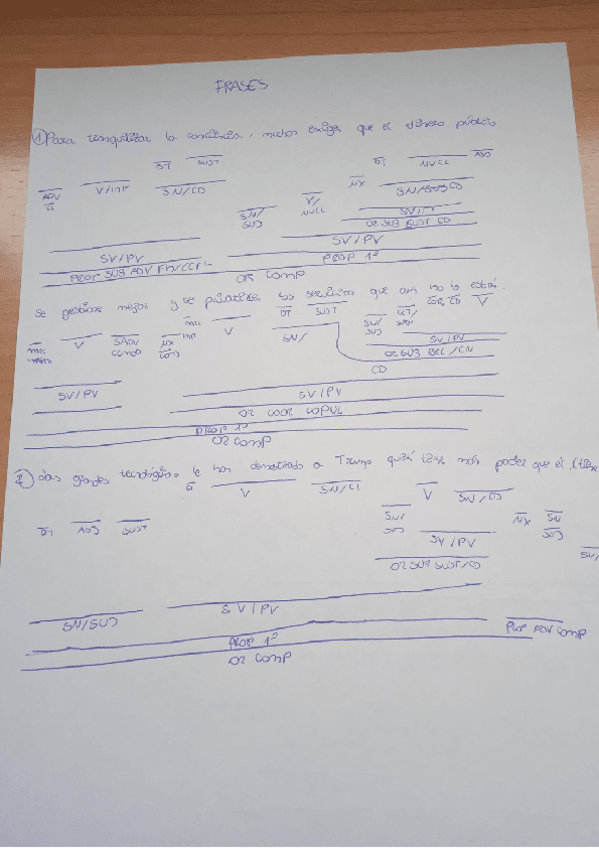 FRASES
① Para tranquilizar la conciencia, muchos exigen que el dinero público
DT SUST DT NUCL ADJ
ADV V/INF SN/CD NX SN/SUJ CD
SN/SUJ V/NUCL SV/PV
OR SUB SUST CD
SV/PV SV/PV
PROP SUB ADV FIN/CCFL PROP 1ª
OR COMP
se gestione mejor y se privaticen los servicios que aún no lo están.
DT SUST SN/SUJ CCT/SADJ V
V SADV NX V SN/ SV/PV
CCMOD OR SUB REL/CN
CD
SV/PV SV/PV
OR COOR COPUL
PROP 1ª
OR COMP
② Las grandes tecnológicas le han demostrado a Trump quién tiene más poder que él (tiene
CI V SN/CI V SN/CD
DT ADJ SUST SN/SUJ NX SN/SUJ
SV/PV SV/
OR SUB SUST/CD
SN/SUJ SV/PV
PROP 1ª PROP ADV COMP
OR COMP